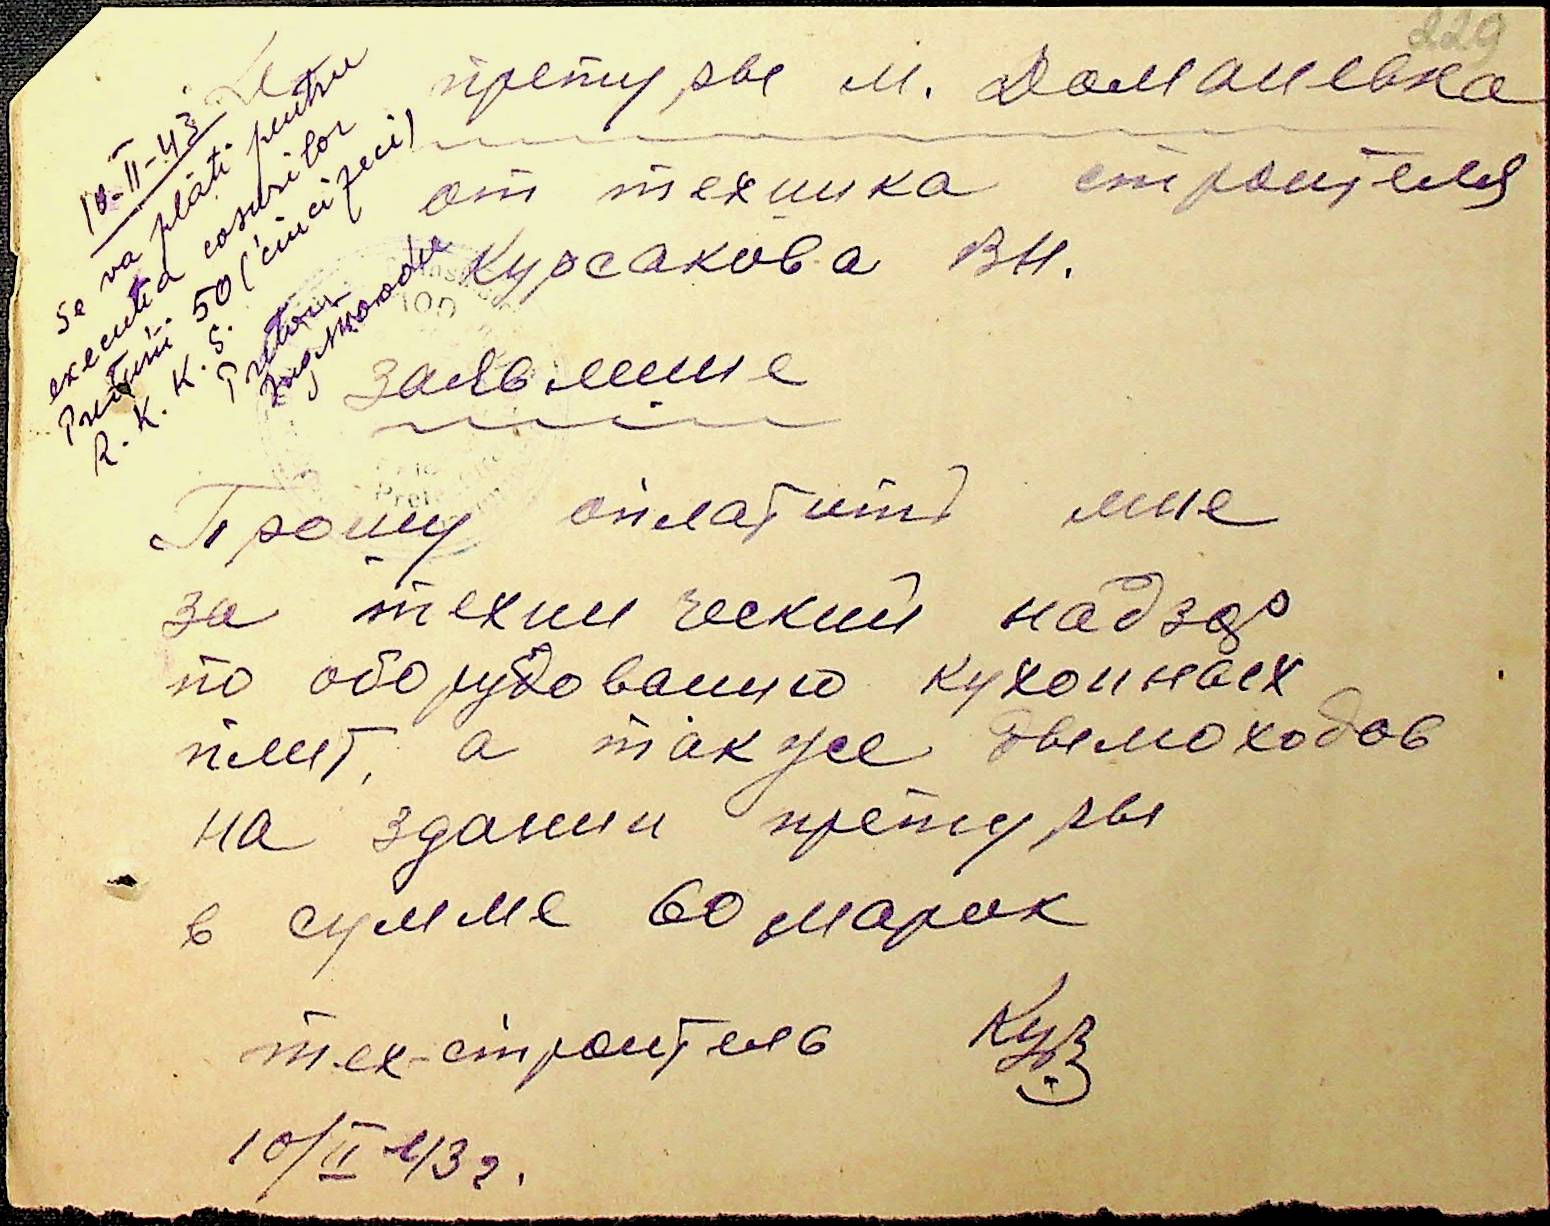 229
10-II-43
Se va plăti pentru
executia cosurilor
Preturii 50 (cinci zeci)
R. K. K. S.
Pretor
претуры м. Доманевка
от техника строителя
Курсакова ВН.
заявление
Прошу оплатить мне
за технический надзор
по оборудованию кухонных
плит, а также дымоходов
на здании претуры
в сумме 60 марок
тех-строитель
10/II 43 г.